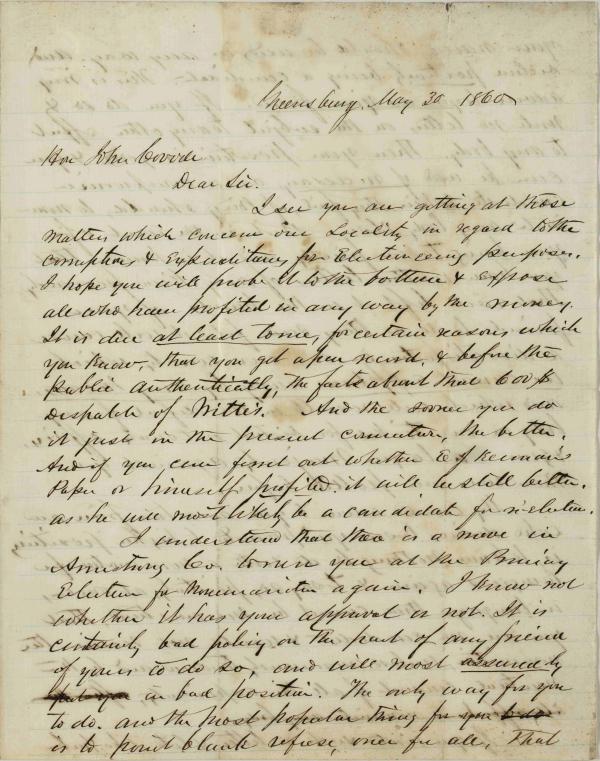 Greensburg, May 30 1860
Hon John Covode
Dear Sir.
I see you are getting at those
matters which concern our Locality in regard to the
corruptions & Expenditures for Electioneering purposes.
I hope you will probe it to the bottom & expose
all who have profited in any way by the money.
It is due at least to me, for certain reasons which
you know, that you get upon record, & before the
public authentically, the facts about that 600$
Despatch of Wittes. And the sooner you do
it just in the present connection, the better.
And if you can find out whether E J Keenan's
Paper or himself profited it will be still better.
as he will most likely be a candidate for re-election.
I understand that there is a move in
Armstrong Co. to run you at the Primary
Election for Nomination again. I know not
whether it has your approval or not. It is
certainly bad policy on the part of any friend
of yours to do so, and will most assuredly
put you in bad position. The only way for you
to do. and the most popular thing for you to do
is to point blank refuse, once for all, that